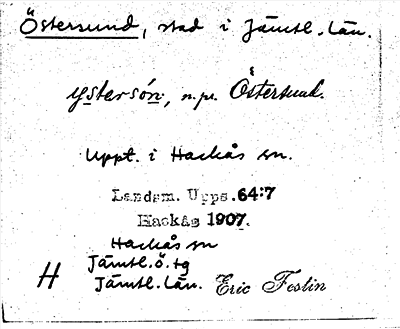 Östersund, stad i Jämtl. län.
ystersón, n.pr. Östersund.
Uppt. i Hackås sn.
Landsm. Upps. 64:7
Hackås 1907.
Hackås sn
H Jämtl. ö. tg
Jämtl. län. Eric Festin